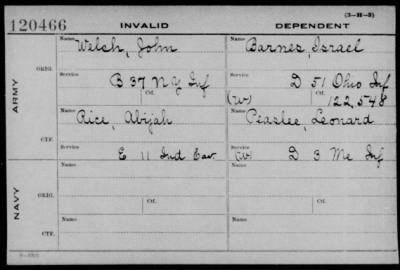 (3-H-5)
120466 INVALID DEPENDENT
ARMY
ORIG.
Name Welch, John Name Barnes, Israel
Service B 37 N Y Inf Service D 51 Ohio Inf
Ctf. (W) Ctf. 122,548
CTF.
Name Rice, Abijah Name Peaslee, Leonard
Service E 11 Ind Cav. Service (W) D 3 Me Inf
NAVY
ORIG.
Name Name
Ctf. Ctf.
CTF.
Name Name